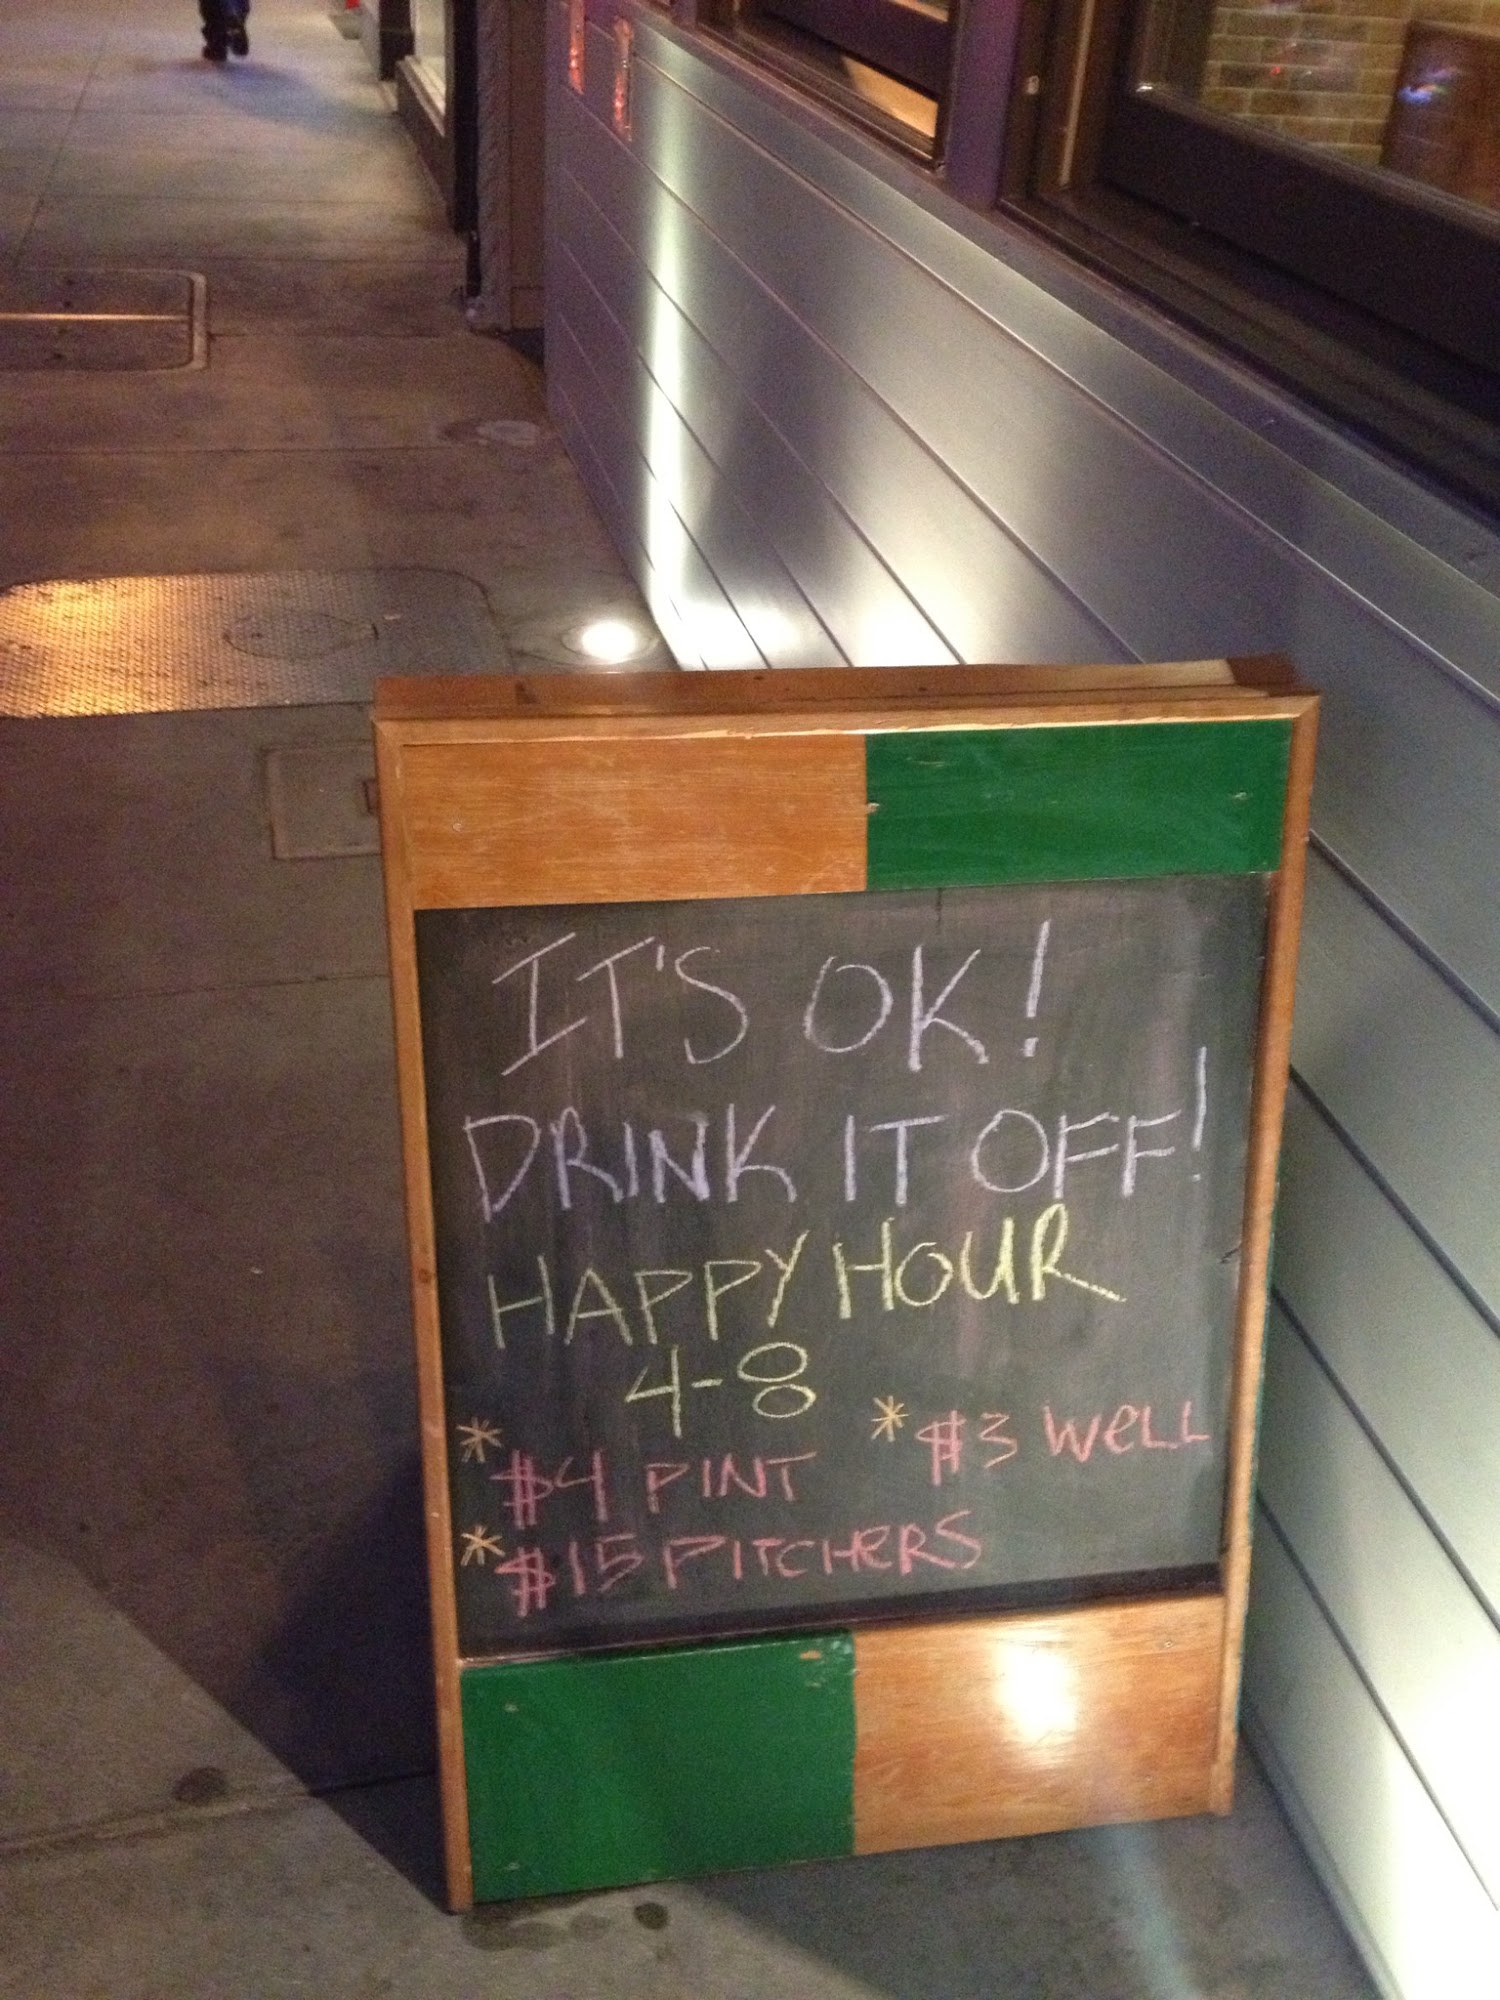 IT'S OK!
DRINK IT OFF!
HAPPY HOUR
4-8
* $4 PINT * $3 WELL
* $15 PITCHERS